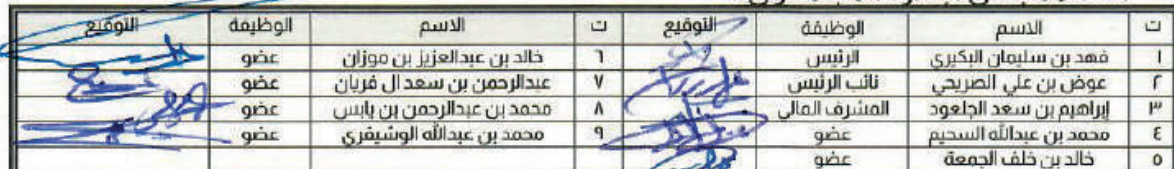 ت الاسم الوظيفة التوقيع ت الاسم الوظيفة التوقيع
١ فهد بن سليمان البكيري الرئيس ٦ خالد بن عبدالعزيز بن موزان عضو
٢ عوض بن علي الصريحي نائب الرئيس ٧ عبدالرحمن بن سعد ال فريان عضو
٣ إبراهيم بن سعد الجلعود المشرف المالي ٨ محمد بن عبدالرحمن بن يابس عضو
٤ محمد بن عبدالله السحيم عضو ٩ محمد بن عبدالله الوشيقري عضو
٥ خالد بن خلف الجمعة عضو